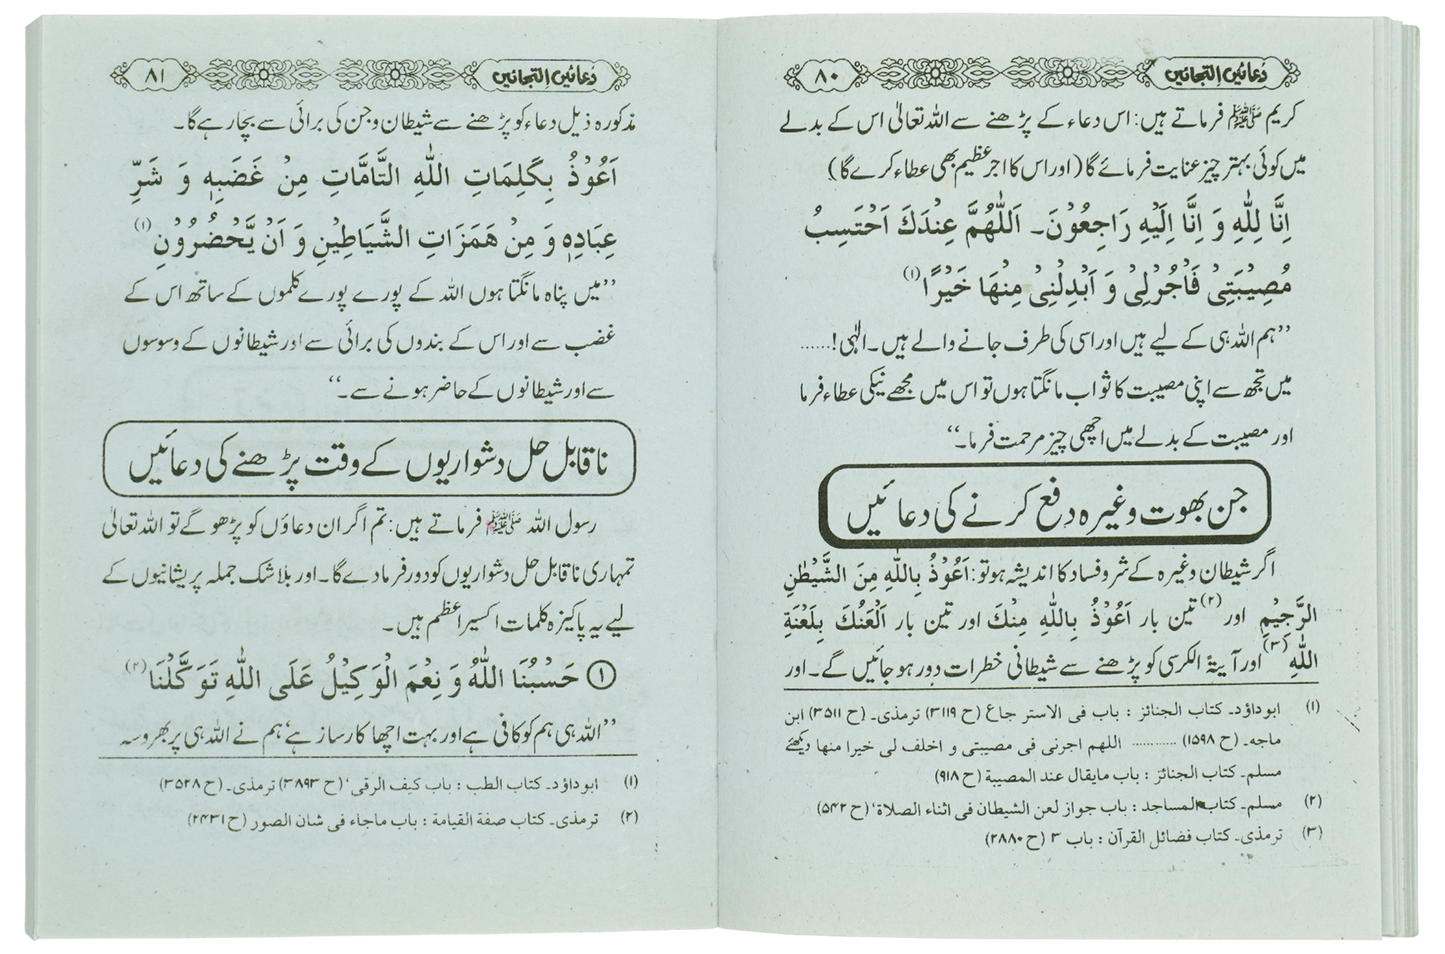 دعائیں التجائیں ۸۰
کریم ﷺ فرماتے ہیں: اس دعاء کے پڑھنے سے اللہ تعالیٰ اس کے بدلے
میں کوئی بہتر چیز عنایت فرمائے گا (اور اس کا اجر عظیم بھی عطاء کرے گا)
اِنَّا لِلّٰهِ وَ اِنَّا اِلَيْهِ رَاجِعُوْنَ۔ اَللّٰهُمَّ عِنْدَكَ اَحْتَسِبُ
مُصِيْبَتِيْ فَاْجُرْلِيْ وَ اَبْدِلْنِيْ مِنْهَا خَيْرًا (۱)
”ہم اللہ ہی کے لیے ہیں اور اسی کی طرف جانے والے ہیں۔ الٰہی!......
میں تجھ سے اپنی مصیبت کا ثواب مانگتا ہوں تو اس میں مجھے نیکی عطاء فرما
اور مصیبت کے بدلے میں اچھی چیز مرحمت فرما۔“
جن بھوت وغیرہ دفع کرنے کی دعائیں
اگر شیطان وغیرہ کے شر و فساد کا اندیشہ ہو تو: اَعُوْذُ بِاللّٰهِ مِنَ الشَّيْطٰنِ
الرَّجِيْمِ اور (۲) تین بار اَعُوْذُ بِاللّٰهِ مِنْكَ اور تین بار اَلْعَنُكَ بِلَعْنَةِ
اللّٰهِ (۳) اور آیۃ الکرسی کو پڑھنے سے شیطانی خطرات دور ہو جائیں گے۔ اور
(۱) ابوداؤد۔ کتاب الجنائز : باب فی الاستر جاع (ح ۳۱۱۹) ترمذی۔ (ح ۳۵۱۱) ابن
ماجہ۔ (ح ۱۵۹۸) ............ اللھم اجرنی فی مصیبتی و اخلف لی خیرا منھا دیکھئے
مسلم۔ کتاب الجنائز : باب مایقال عند المصیبة (ح ۹۱۸)
(۲) مسلم۔ کتاب المساجد : باب جواز لعن الشیطان فی اثناء الصلاة‘ (ح ۵۴۲)
(۳) ترمذی۔ کتاب فضائل القرآن : باب ۳ (ح ۲۸۸۰)
دعائیں التجائیں ۸۱
مذکورہ ذیل دعاء کو پڑھنے سے شیطان و جن کی برائی سے بچا رہے گا۔
اَعُوْذُ بِكَلِمَاتِ اللّٰهِ التَّامَّاتِ مِنْ غَضَبِهٖ وَ شَرِّ
عِبَادِهٖ وَ مِنْ هَمَزَاتِ الشَّيَاطِيْنِ وَ اَنْ يَّحْضُرُوْنِ (۱)
”میں پناہ مانگتا ہوں اللہ کے پورے پورے کلموں کے ساتھ اس کے
غضب سے اور اس کے بندوں کی برائی سے اور شیطانوں کے وسوسوں
سے اور شیطانوں کے حاضر ہونے سے۔“
ناقابل حل دشواریوں کے وقت پڑھنے کی دعائیں
رسول اللہ ﷺ فرماتے ہیں: تم اگر ان دعاؤں کو پڑھو گے تو اللہ تعالیٰ
تمہاری ناقابل حل دشواریوں کو دور فرما دے گا۔ اور بلا شک جملہ پریشانیوں کے
لیے یہ پاکیزہ کلمات اکسیر اعظم ہیں۔
① حَسْبُنَا اللّٰهُ وَ نِعْمَ الْوَكِيْلُ عَلَى اللّٰهِ تَوَكَّلْنَا (۲)
”اللہ ہی ہم کو کافی ہے اور بہت اچھا کارساز ہے‘ ہم نے اللہ ہی پر بھروسہ
(۱) ابوداؤد۔ کتاب الطب : باب کیف الرقی‘ (ح ۳۸۹۳) ترمذی۔ (ح ۳۵۲۸)
(۲) ترمذی۔ کتاب صفة القیامة : باب ماجاء فی شان الصور (ح ۲۴۳۱)